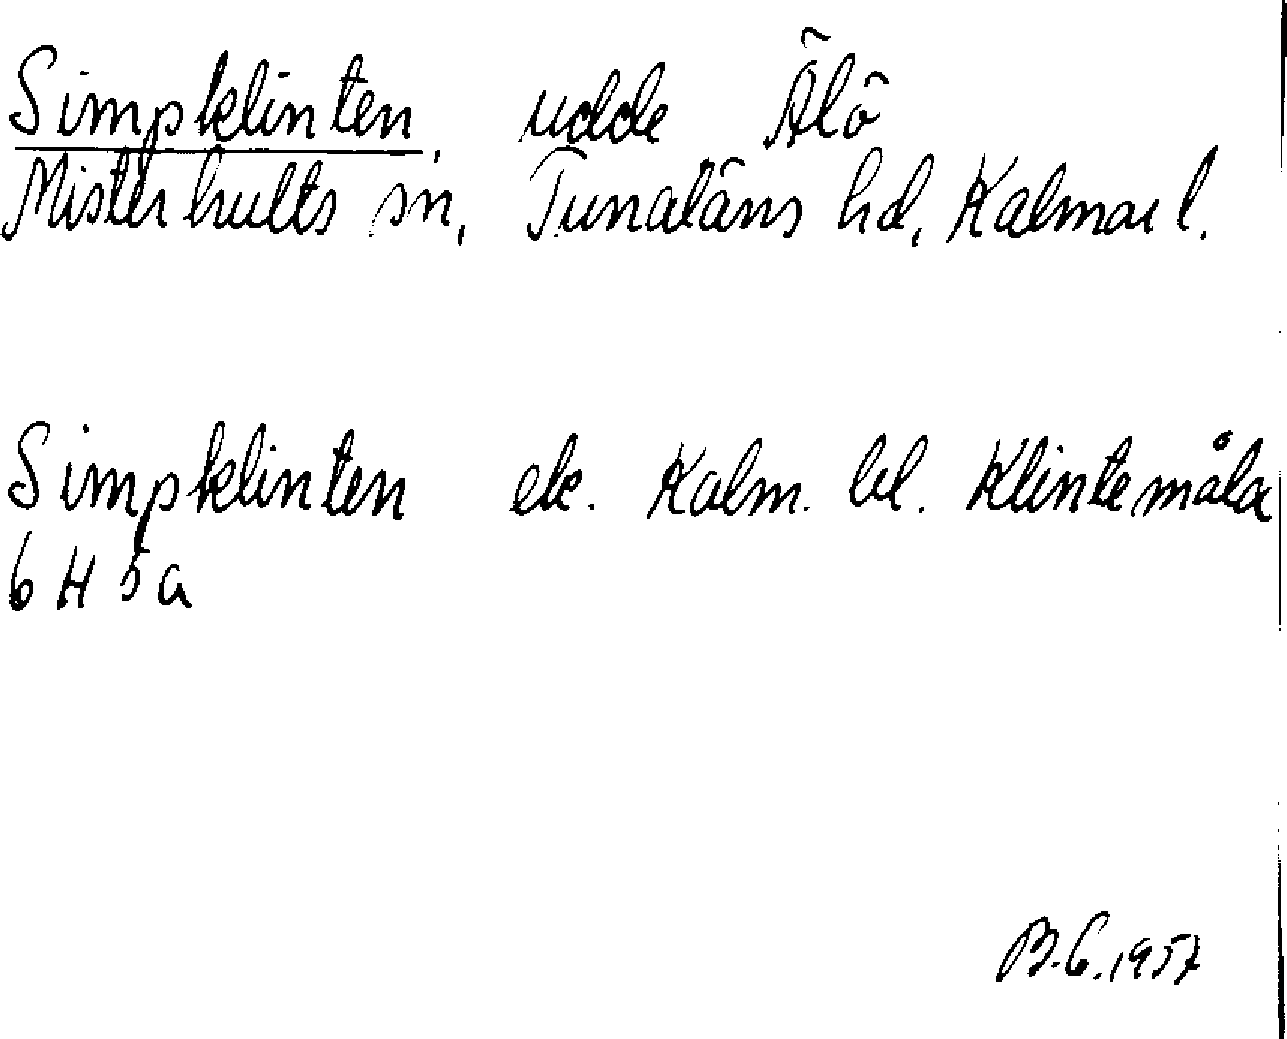 Simpklinten, udde Älö
Misterhults sn, Tunaläns hd, Kalmar l.
Simpklinten ek. Kalm. bl. Klintemåla
6 H 5 a
B.G. 1957